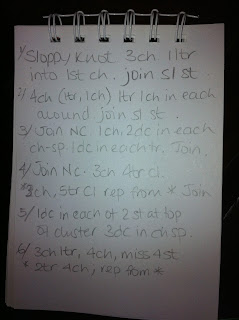 1/ Sloppy Knot 3ch 11tr
into 1st ch. join sl st.
2/ 4ch (1tr, 1ch) 1tr 1ch in each
around join sl st.
3/ Join NC. 1ch, 2dc in each
ch-sp 1dc in each tr. Join.
4/ Join NC. 3ch 4tr cl.
*3ch, 5tr Cl rep from * Join
5/ 1dc in each of 2 st at top
of cluster 3dc in ch sp.
6/ 3ch 1tr, 4ch, miss 4 st
* 2tr 4ch, rep from *